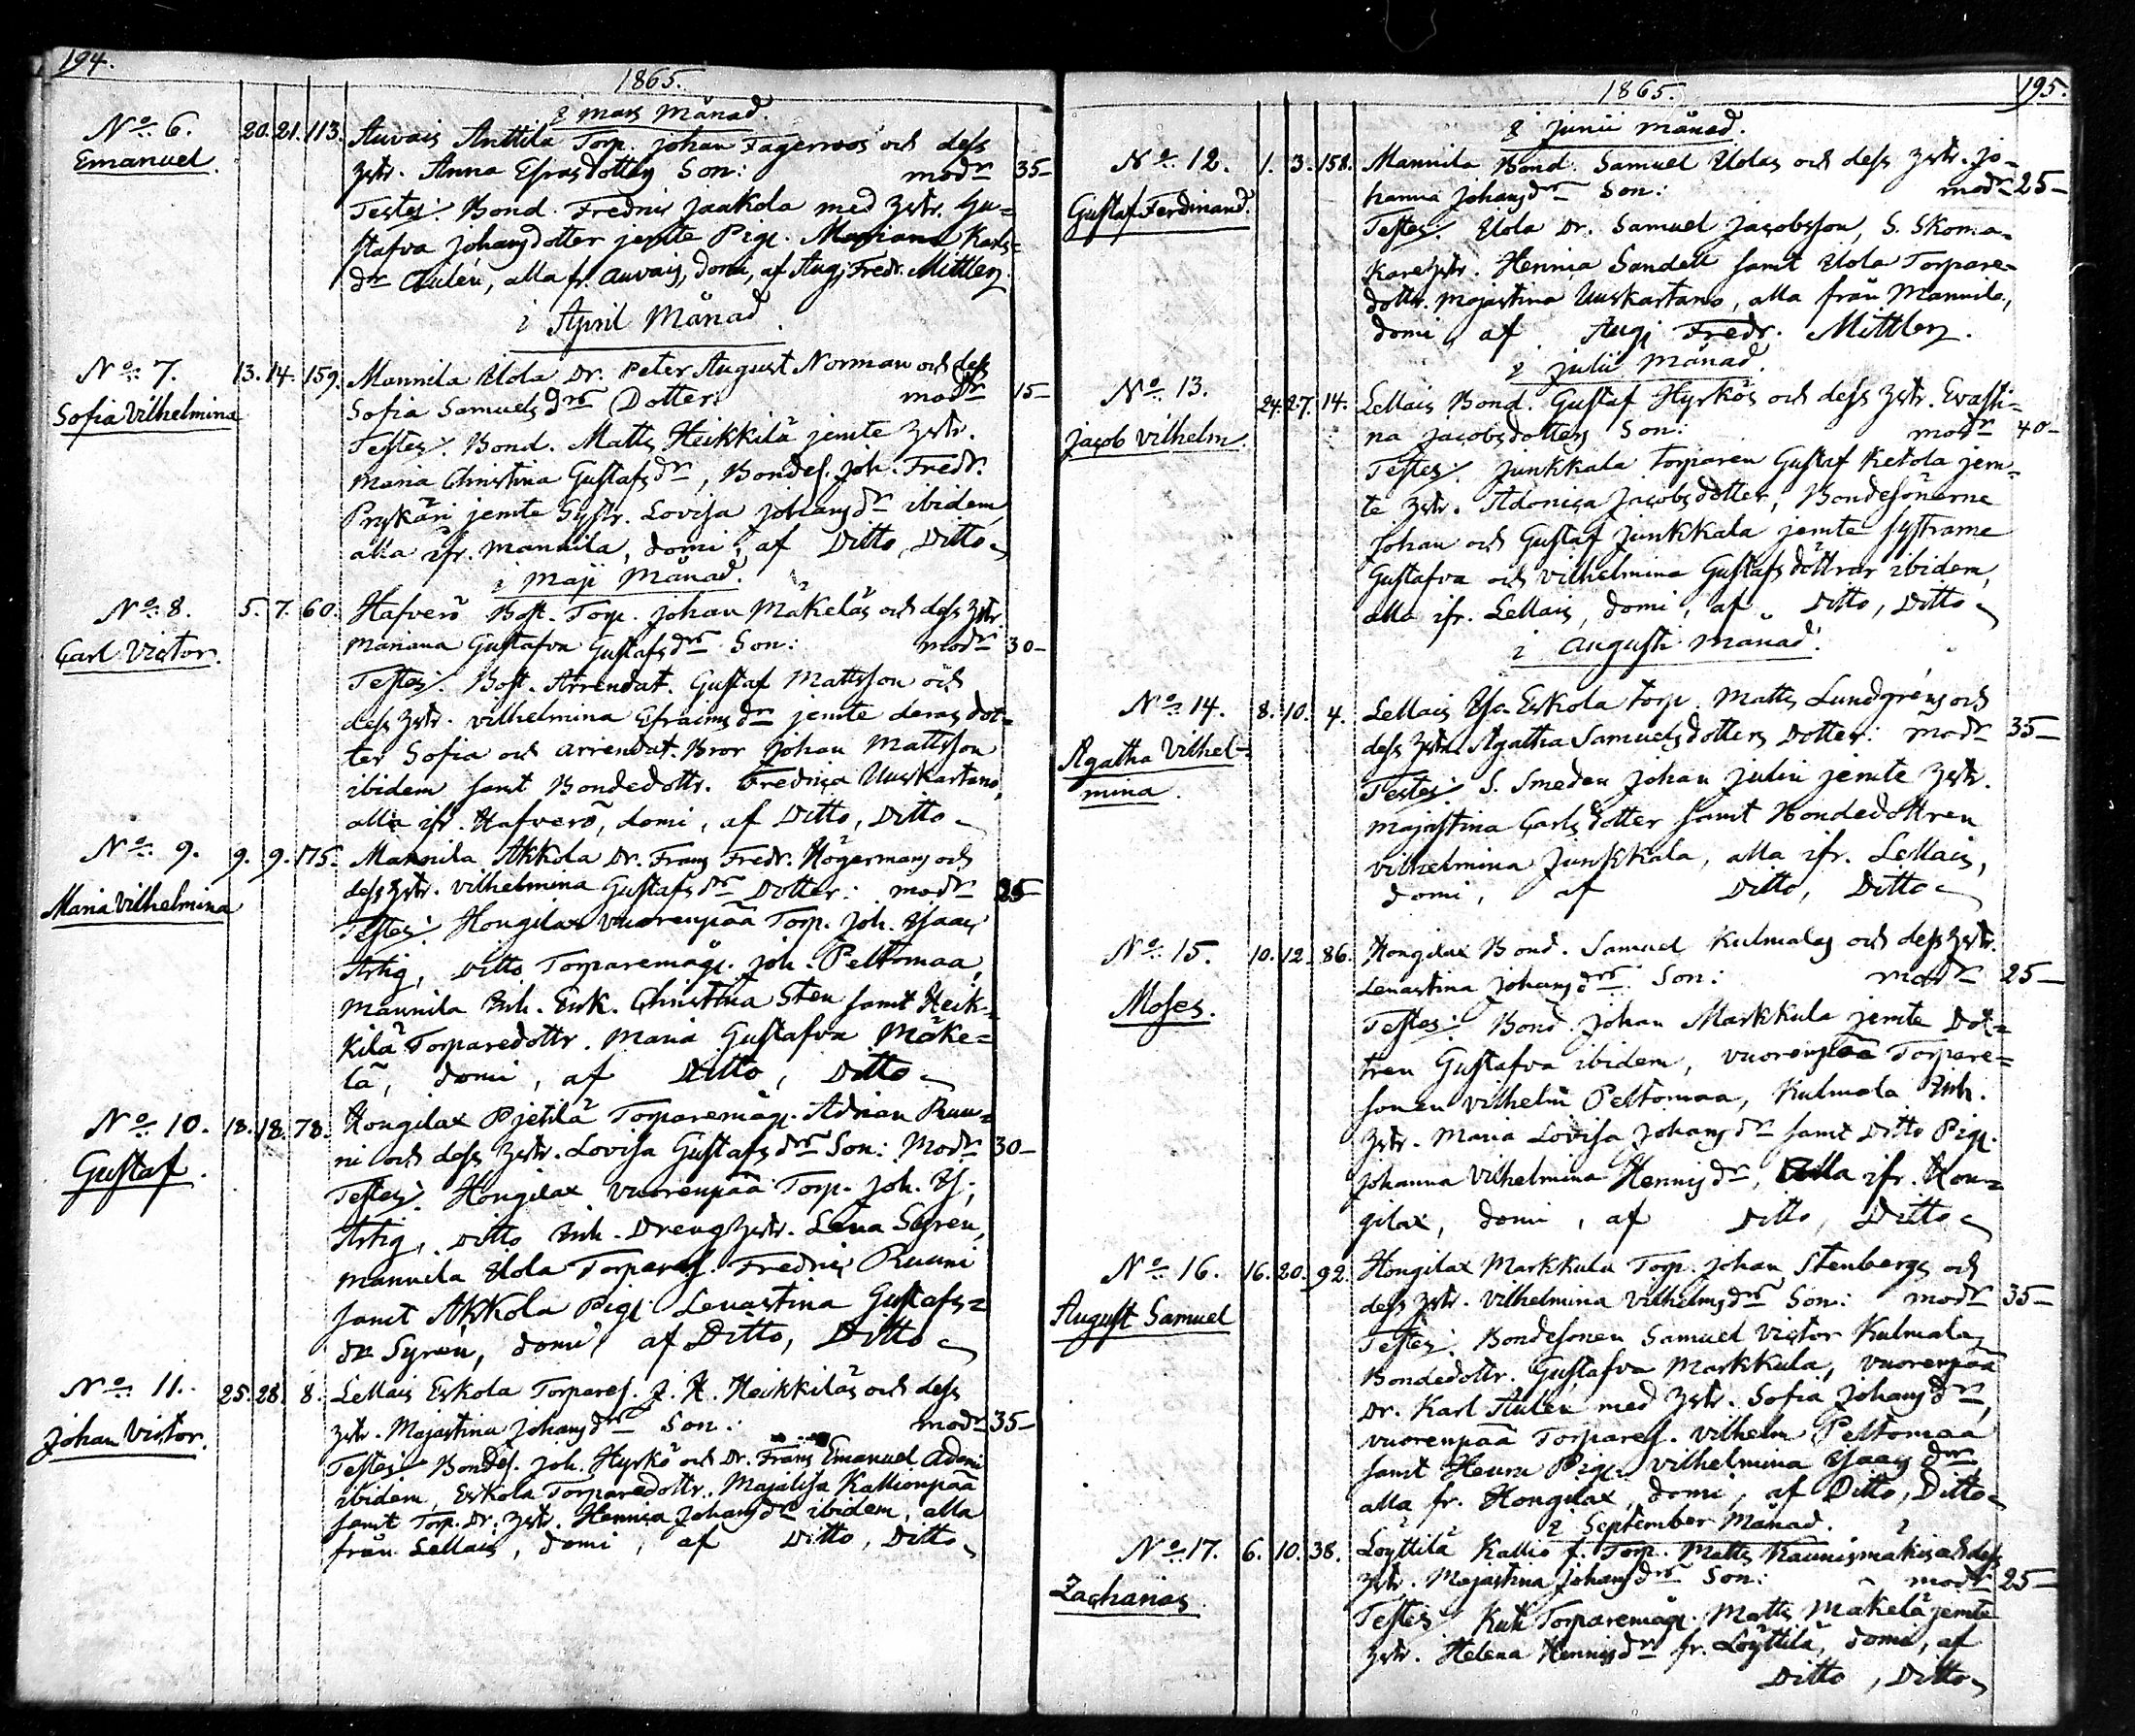 194.
1865.
i mars månad.
No 6. 20. 21. 113. Auvais Anttila Torp. Johan Fagerroos och dess
Emanuel. hstr. Anna Esrasdotters Son: modr 35-
Testes: Bond. Fredric Jaakola med hstr. Gu=
stafva Johansdotter jemte Pig. Mariana Karls=
dr Aulén, alla fr. Auvais, domi, af Aug. Fredr. Mittler.
i April Månad.
No 7. 13. 14. 159. Mannila Uola Dr. Peter August Norman och dess
Sofia Vilhelmina Sofia Samuelsdrs Dotter: modr 15-
Testes: Bond. Matts Heikkilä jemte hstr.
Maria Christina Gustafsdr, Bondes. Joh. Fredr.
Prykäri jemte Systr. Lovisa Johansdr ibidem,
alla ifr. Mannila, domi, af Ditto, Ditto
i Maji Månad.
No 8. 5. 7. 60. Hafverö Bost. Torp. Johan Mäkeläs och dess hstr.
Carl Victor. Mariana Gustafva Gustafsdrs Son: modr 30-
Testes: Bost. Arrendat. Gustaf Mattsson och
dess hstr. Vilhelmina Efraimsdr jemte deras dot=
ter Sofia och arrendat. Bror Johan Mattsson
ibidem samt Bondedottr. Fredrica Uuskartano,
alla ifr. Hafverö, domi, af Ditto, Ditto
No 9. 9. 9. 175. Mannila Akkola Dr. Frans Fredr. Högermans och
Maria Vilhelmina dess hstr. Vilhelmina Gustafsdrs Dotter: modr 25-
Testes: Hongilax Vuorenpää Torp. Joh. Isaac
Artig, Ditto Torparemåg. Joh. Peltomaa,
Mannila Inh. Enk. Christina Sten samt Heik=
kilä Torparedottr. Maria Gustafva Mäke=
lä, domi, af Ditto, Ditto
No 10. 18. 18. 78. Hongilax Pjetilä Torparemåg. Adrian Ruu=
Gustaf. ni och dess hstr. Lovisa Gustafsdrs Son: Modr 30-
Testes: Hongilax Vuorenpää Torp. Joh. Is.
Artig, Ditto Inh. Dreng hstr. Lena Syrén,
Mannila Uola Torpares. Fredric Ruuni
samt Akkola Pig. Lenastina Gustafs=
dr Syrén, domi, af Ditto, Ditto
No 11. 25. 28. 8. Lellais Eskola Torpares. J. H. Heikkiläs och dess
Johan Victor. hstr. Majastina Johansdrs Son: modr 35-
Testes: Bondes. Joh. Hyrkö och Dr. Frans Emanuel Adami
ibidem, Eskola Torparedottr. Majalisa Kallionpää
samt Torp. Dr. hstr. Henrica Johansdr ibidem, alla
från Lellais, domi, af Ditto, Ditto
195.
1865.
i Junii månad.
No 12. 1. 3. 158. Mannila Bond. Samuel Uolas och dess hstr. Jo=
Gustaf Ferdinand. hanna Johansdrs Son: modr 25-
Testes: Uola Dr. Samuel Jacobsson, S. Skoma=
kare hstr. Henrica Sandell samt Uola Torpare=
dottr. Majastina Uuskartano, alla från Mannila,
domi, af Aug. Fredr. Mittler.
i Julii månad.
No 13. 24. 27. 14. Lellais Bond. Gustaf Hyrkös och dess hstr. Evasti=
Jacob Vilhelm. na Jacobsdotters Son: modr 40-
Testes: Junkkala torparen Gustaf Ketola jem=
te hstr. Adonica Jacobsdotter, Bondesönerne
Johan och Gustaf Junkkala jemte systrarne
Gustafva och Vilhelmina Gustafsdöttrar ibidem,
alla ifr. Lellais, domi, af Ditto, Ditto
i Augusti månad.
No 14. 8. 10. 4. Lellais Yso Eskola torp. Matts Lundgréns och
Agatha Vilhel= dess hstr. Agatha Samuelsdotters Dotter: modr 35-
mina. Testes: S. Smeden Johan Julin jemte hstr.
Majastina Carlsdotter samt Bondedottren
Vilhelmina Junkkala, alla ifr. Lellais,
domi, af Ditto, Ditto
No 15. 10. 12. 86. Hongilax Bond. Samuel Kulmalas och dess hstr.
Moses. Lenastina Johansdrs Son: modr 25-
Testes: Bond. Johan Markkula jemte Dot=
tren Gustafva ibidem, Vuorenpää Torpare=
sonen Vilhelm Peltomaa, Kulmala Inh.
hstr. Maria Lovisa Johansdr samt Ditto Pig.
Johanna Vilhelmina Henricsdr, Alla ifr. Hon=
gilax, domi, af Ditto, Ditto
No 16. 16. 20. 92. Hongilax Markkula Torp. Johan Stenbergs och
August Samuel dess hstr. Vilhelmina Vilhelmsdrs Son: modr 35-
Testes: Bondesonen Samuel Victor Kulmala,
Bondedottr. Gustafva Markkula, Vuorenpää
Dr. Karl Aulén med hstr. Sofia Johansdr,
Vuorenpää Torpares. Vilhelm Peltomaa
samt Heuru Pig. Vilhelmina Isaacsdr
alla fr. Hongilax, domi, af Ditto, Ditto
i September Månad.
No 17. 6. 10. 38. Löyttilä Kallio f. Torp. Matts Kaunismäkis och dess
Zacharias. hstr. Majastina Johansdrs Son: modr 25-
Testes: Torparemåg. Matts Mäkelä jemte
hstr. Helena Henricsdr fr. Löyttilä, domi, af
Ditto, Ditto